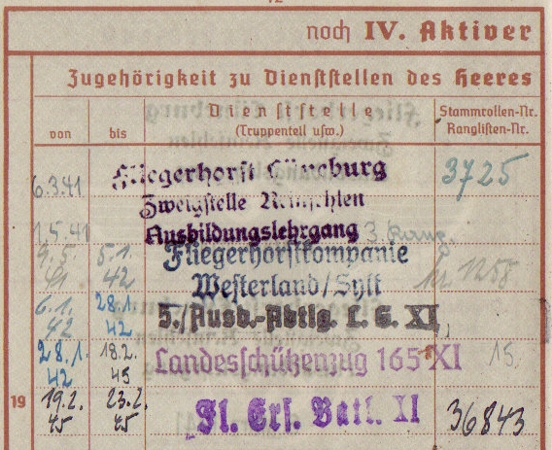 noch IV. Aktiver
Zugehörigkeit zu Dienststellen des Heeres
von
bis
Dienststelle
(Truppenteil usw.)
Stammrollen-Nr.
Ranglisten-Nr.
6.3.41
Fliegerhorst Lüneburg
Zweigstelle
Ausbildungslehrgang
3725
1.5.41
3 Komp.
9.5.41
5.1.42
Fliegerhorstkompanie
Westerland/Sylt
1258
6.1.42
28.1.42
5./Ausb.-Abtlg. L. G. XI
28.1.42
18.2.45
Landesschützenzug 165 XI
15
19
19.2.45
23.2.45
Fl. Ers. Batl. XI
36843